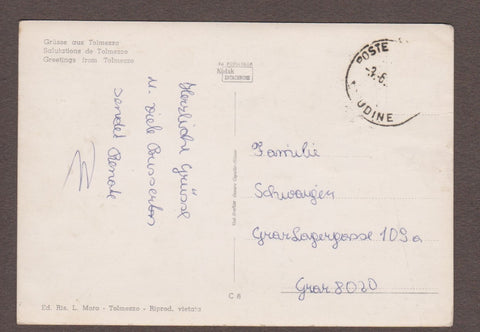 Grüsse aus Tolmezzo
Salutations de Tolmezzo
Greetings from Tolmezzo
Herzliche Grüsse
u. viele Busserln
sendet Renate
POSTE
UDINE
Familie
Schwaiger
Graz Lagergasse 109a
Graz 8020
C 8
Ed. Ris. L. Moro - Tolmezzo - Riprod. vietata